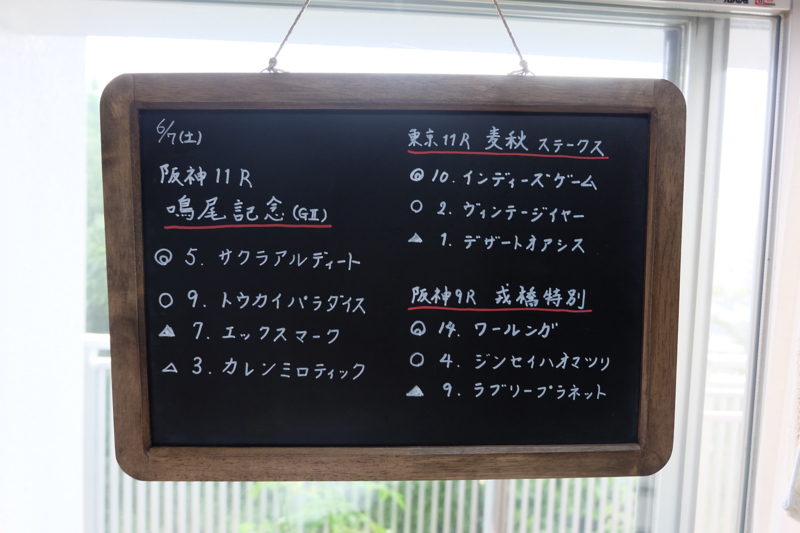 6/7(土)
阪神11R
鳴尾記念(GⅢ)
◎ 5. サクラアルディート
○ 9. トウカイパラダイス
▲ 7. エックスマーク
△ 3. カレンミロティック
東京11R 麦秋ステークス
◎ 10. インディーズゲーム
○ 2. ヴィンテージイヤー
▲ 1. デザートオアシス
阪神9R 戎橋特別
◎ 14. ワールンガ
○ 4. ジンセイハオマツリ
▲ 9. ラブリープラネット